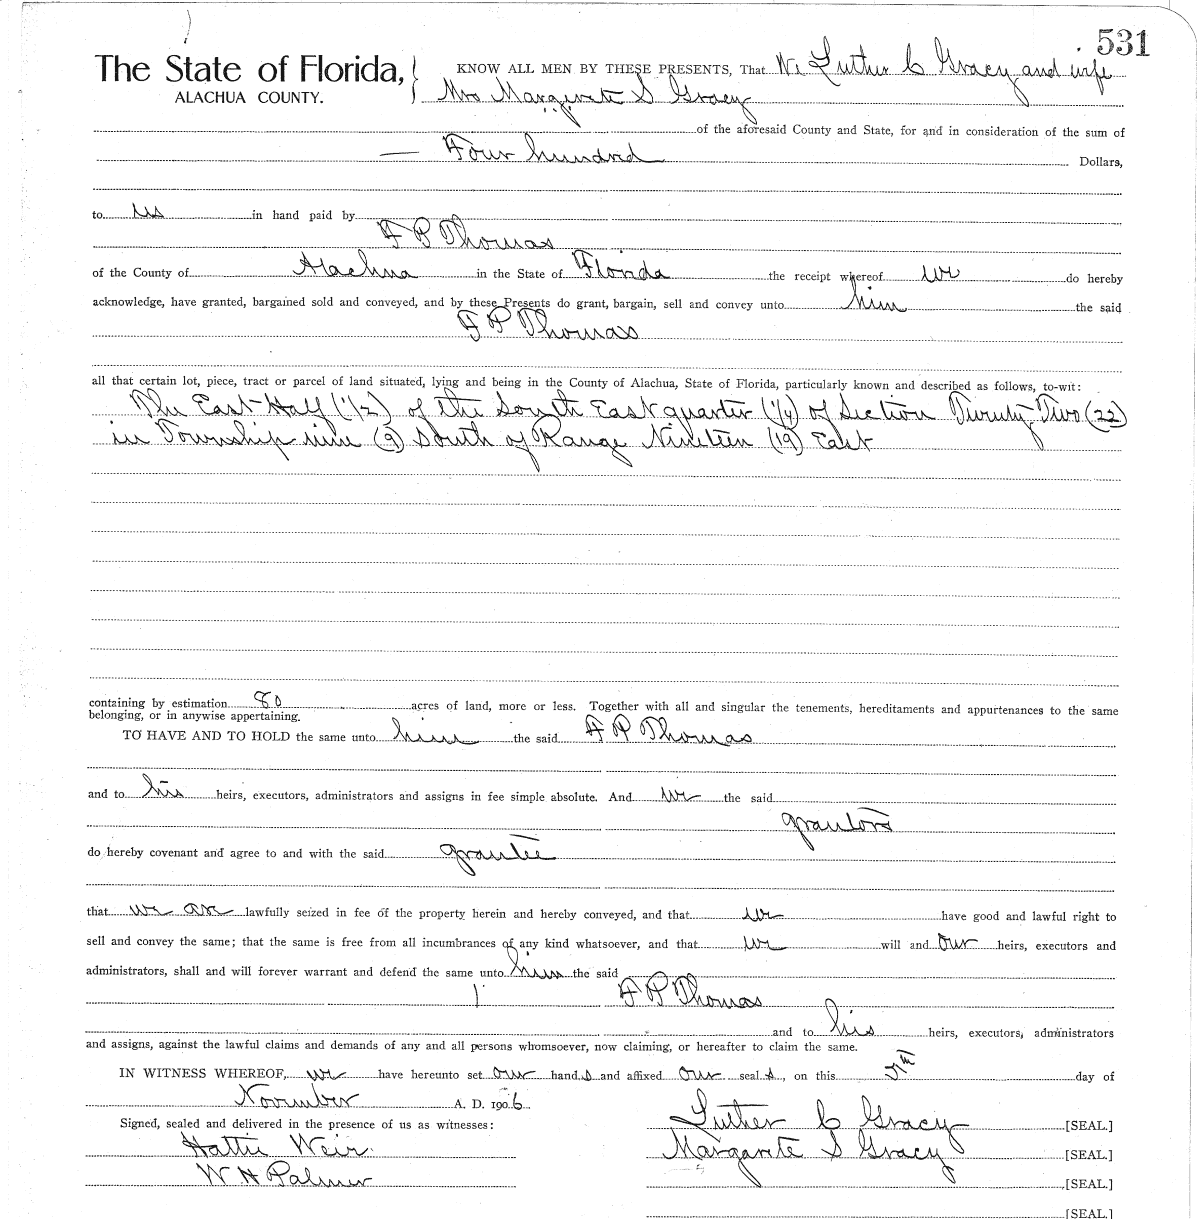 531
The State of Florida, } KNOW ALL MEN BY THESE PRESENTS, That We Luther C Gracy and wife
ALACHUA COUNTY. Mrs Margarete S Gracy
of the aforesaid County and State, for and in consideration of the sum of
— Four hundred Dollars,
to us in hand paid by
F P Thomas
of the County of Alachua in the State of Florida the receipt whereof we do hereby
acknowledge, have granted, bargained sold and conveyed, and by these Presents do grant, bargain, sell and convey unto him the said
F P Thomas
all that certain lot, piece, tract or parcel of land situated, lying and being in the County of Alachua, State of Florida, particularly known and described as follows, to-wit:
The East Half (1/2) of the South East quarter (1/4) of Section Twenty-Two (22)
in Township nine (9) South of Range Nineteen (19) East
containing by estimation 80 acres of land, more or less. Together with all and singular the tenements, hereditaments and appurtenances to the same
belonging, or in anywise appertaining.
TO HAVE AND TO HOLD the same unto him the said F P Thomas
and to his heirs, executors, administrators and assigns in fee simple absolute. And we the said
grantors
do hereby covenant and agree to and with the said grantee
that we are lawfully seized in fee of the property herein and hereby conveyed, and that we have good and lawful right to
sell and convey the same; that the same is free from all incumbrances of any kind whatsoever, and that we will and our heirs, executors and
administrators, shall and will forever warrant and defend the same unto him the said
F P Thomas
and to his heirs, executors, administrators
and assigns, against the lawful claims and demands of any and all persons whomsoever, now claiming, or hereafter to claim the same.
IN WITNESS WHEREOF, we have hereunto set our hands and affixed our seals, on this 5th day of
November A. D. 1906
Signed, sealed and delivered in the presence of us as witnesses: Luther C Gracy [SEAL.]
Hattie Weir. Margarete S Gracy [SEAL.]
W H Palmer [SEAL.]
[SEAL.]